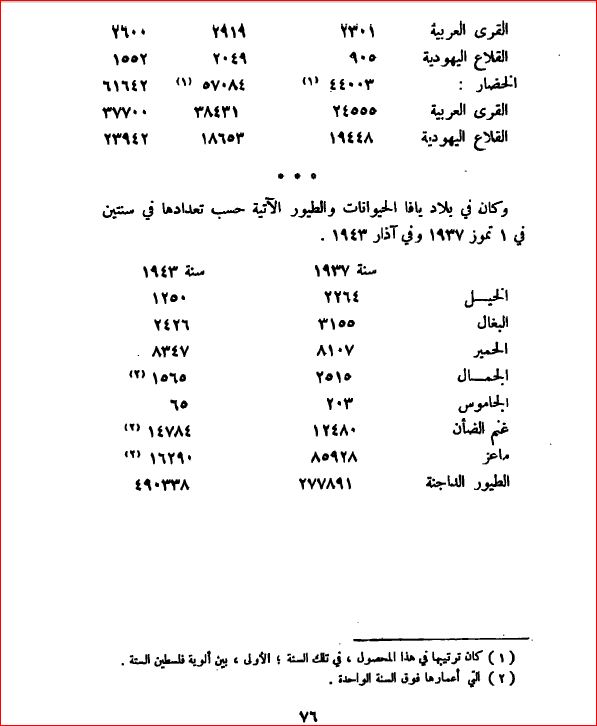 القرى العربية ٢٣٠١ ٢٩١٩ ٢٦٠٠
القلاع اليهودية ٩٠٥ ٢٠٤٩ ١٥٥٢
الخضار : ٤٤٠٠٣ (١) ٥٧٠٨٤ (١) ٦١٦٤٢
القرى العربية ٢٤٥٥٥ ٣٨٤٣١ ٣٧٧٠٠
القلاع اليهودية ١٩٤٤٨ ١٨٦٥٣ ٢٣٩٤٢
• • •
وكان في بلاد يافا الحيوانات والطيور الآتية حسب تعدادها في سنتين
في ١ تموز ١٩٣٧ وفي آذار ١٩٤٣ .
سنة ١٩٣٧ سنة ١٩٤٣
الخيــل ٢٢٦٤ ١٢٥٠
البغال ٣١٥٥ ٢٤٢٦
الحمير ٨١٠٧ ٨٣٤٧
الجمــال ٢٥١٥ ١٥٦٥ (٢)
الجاموس ٢٠٣ ٦٥
غنم الضأن ١٢٤٨٠ ١٤٧٨٤ (٢)
ماعز ٨٥٩٢٨ ١٦٢٩٠ (٢)
الطيور الداجنة ٢٧٧٨٩١ ٤٩٠٣٣٨
(١) كان ترتيبها في هذا المحصول ، في تلك السنة ؛ الأولى ، بين ألوية فلسطين الستة .
(٢) التي أعمارها فوق السنة الواحدة .
٧٦